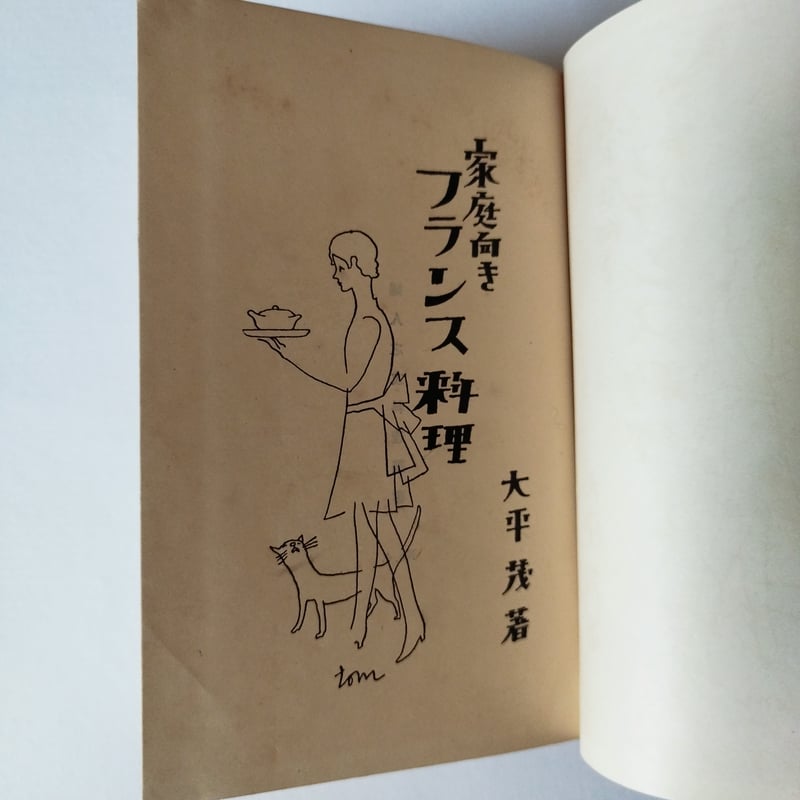 家庭向き
フランス料理
大平茂著
tom